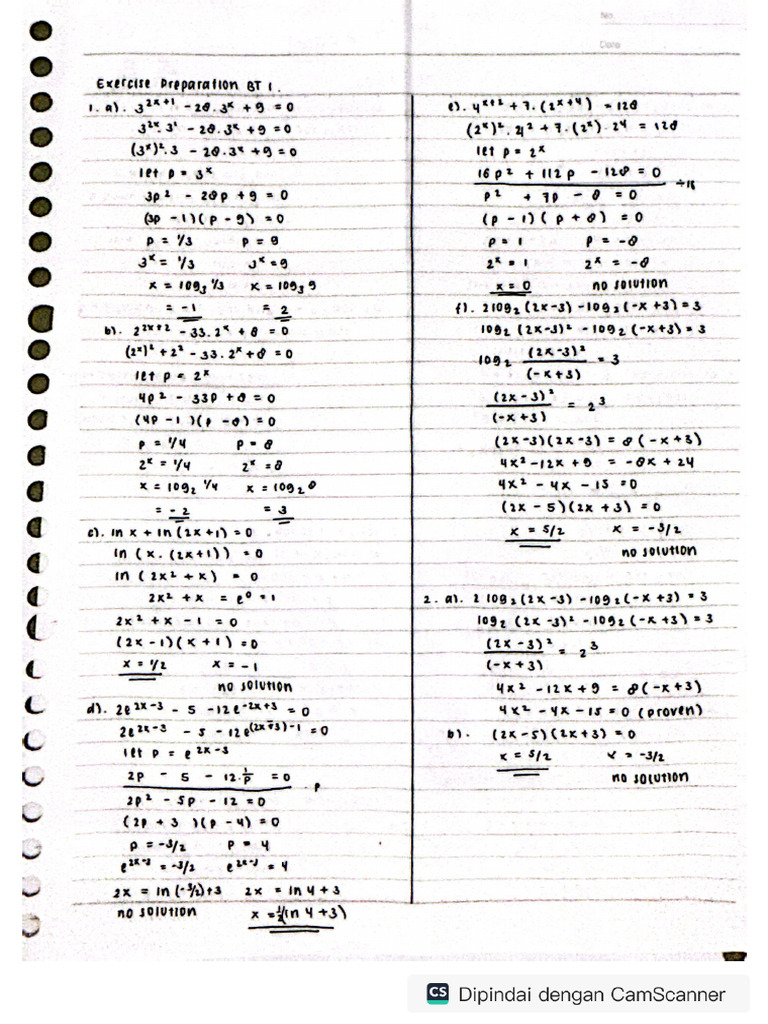 No
Date
Exercise Preparation BT 1.
1. a). 3^(2x+1) - 28.3^x + 9 = 0
3^2x.3^1 - 28.3^x + 9 = 0
(3^x)^2.3 - 28.3^x + 9 = 0
let p = 3^x
3p^2 - 28p + 9 = 0
(3p - 1)(p - 9) = 0
p = 1/3 p = 9
3^x = 1/3 3^x = 9
x = log_3 1/3 x = log_3 9
= -1 = 2
b). 2^(2x+2) - 33.2^x + 8 = 0
(2^x)^2 + 2^2 - 33.2^x + 8 = 0
let p = 2^x
4p^2 - 33p + 8 = 0
(4p - 1)(p - 8) = 0
p = 1/4 p = 8
2^x = 1/4 2^x = 8
x = log_2 1/4 x = log_2 8
= -2 = 3
c). ln x + ln (2x+1) = 0
ln (x.(2x+1)) = 0
ln (2x^2 + x) = 0
2x^2 + x = e^0 = 1
2x^2 + x - 1 = 0
(2x - 1)(x + 1) = 0
x = 1/2 x = -1
no solution
d). 2e^(2x-3) - 5 - 12e^(-2x+3) = 0
2e^(2x-3) - 5 - 12e^((2x-3)-1) = 0
let p = e^(2x-3)
2p - 5 - 12.1/p = 0
. p
2p^2 - 5p - 12 = 0
(2p + 3)(p - 4) = 0
p = -3/2 p = 4
e^(2x-3) = -3/2 e^(2x-3) = 4
2x = ln(-3/2)+3 2x = ln 4 + 3
no solution x = 1/2(ln 4 + 3)
e). 4^(x+2) + 7.(2^(x+4)) = 128
(2^x)^2.4^2 + 7.(2^x).2^4 = 128
let p = 2^x
16p^2 + 112p - 128 = 0
÷16
p^2 + 7p - 8 = 0
(p - 1)(p + 8) = 0
p = 1 p = -8
2^x = 1 2^x = -8
x = 0 no solution
f). 2log_2(2x-3) - log_2(-x+3) = 3
log_2 (2x-3)^2 - log_2(-x+3) = 3
log_2 (2x-3)^2 / (-x+3) = 3
(2x-3)^2 / (-x+3) = 2^3
(2x-3)(2x-3) = 8(-x+3)
4x^2 - 12x + 9 = -8x + 24
4x^2 - 4x - 15 = 0
(2x - 5)(2x + 3) = 0
x = 5/2 x = -3/2
no solution
2. a). 2 log_2(2x-3) - log_2(-x+3) = 3
log_2 (2x-3)^2 - log_2(-x+3) = 3
(2x-3)^2 / (-x+3) = 2^3
4x^2 - 12x + 9 = 8(-x+3)
4x^2 - 4x - 15 = 0 (proven)
b). (2x-5)(2x+3) = 0
x = 5/2 x = -3/2
no solution
CS Dipindai dengan CamScanner